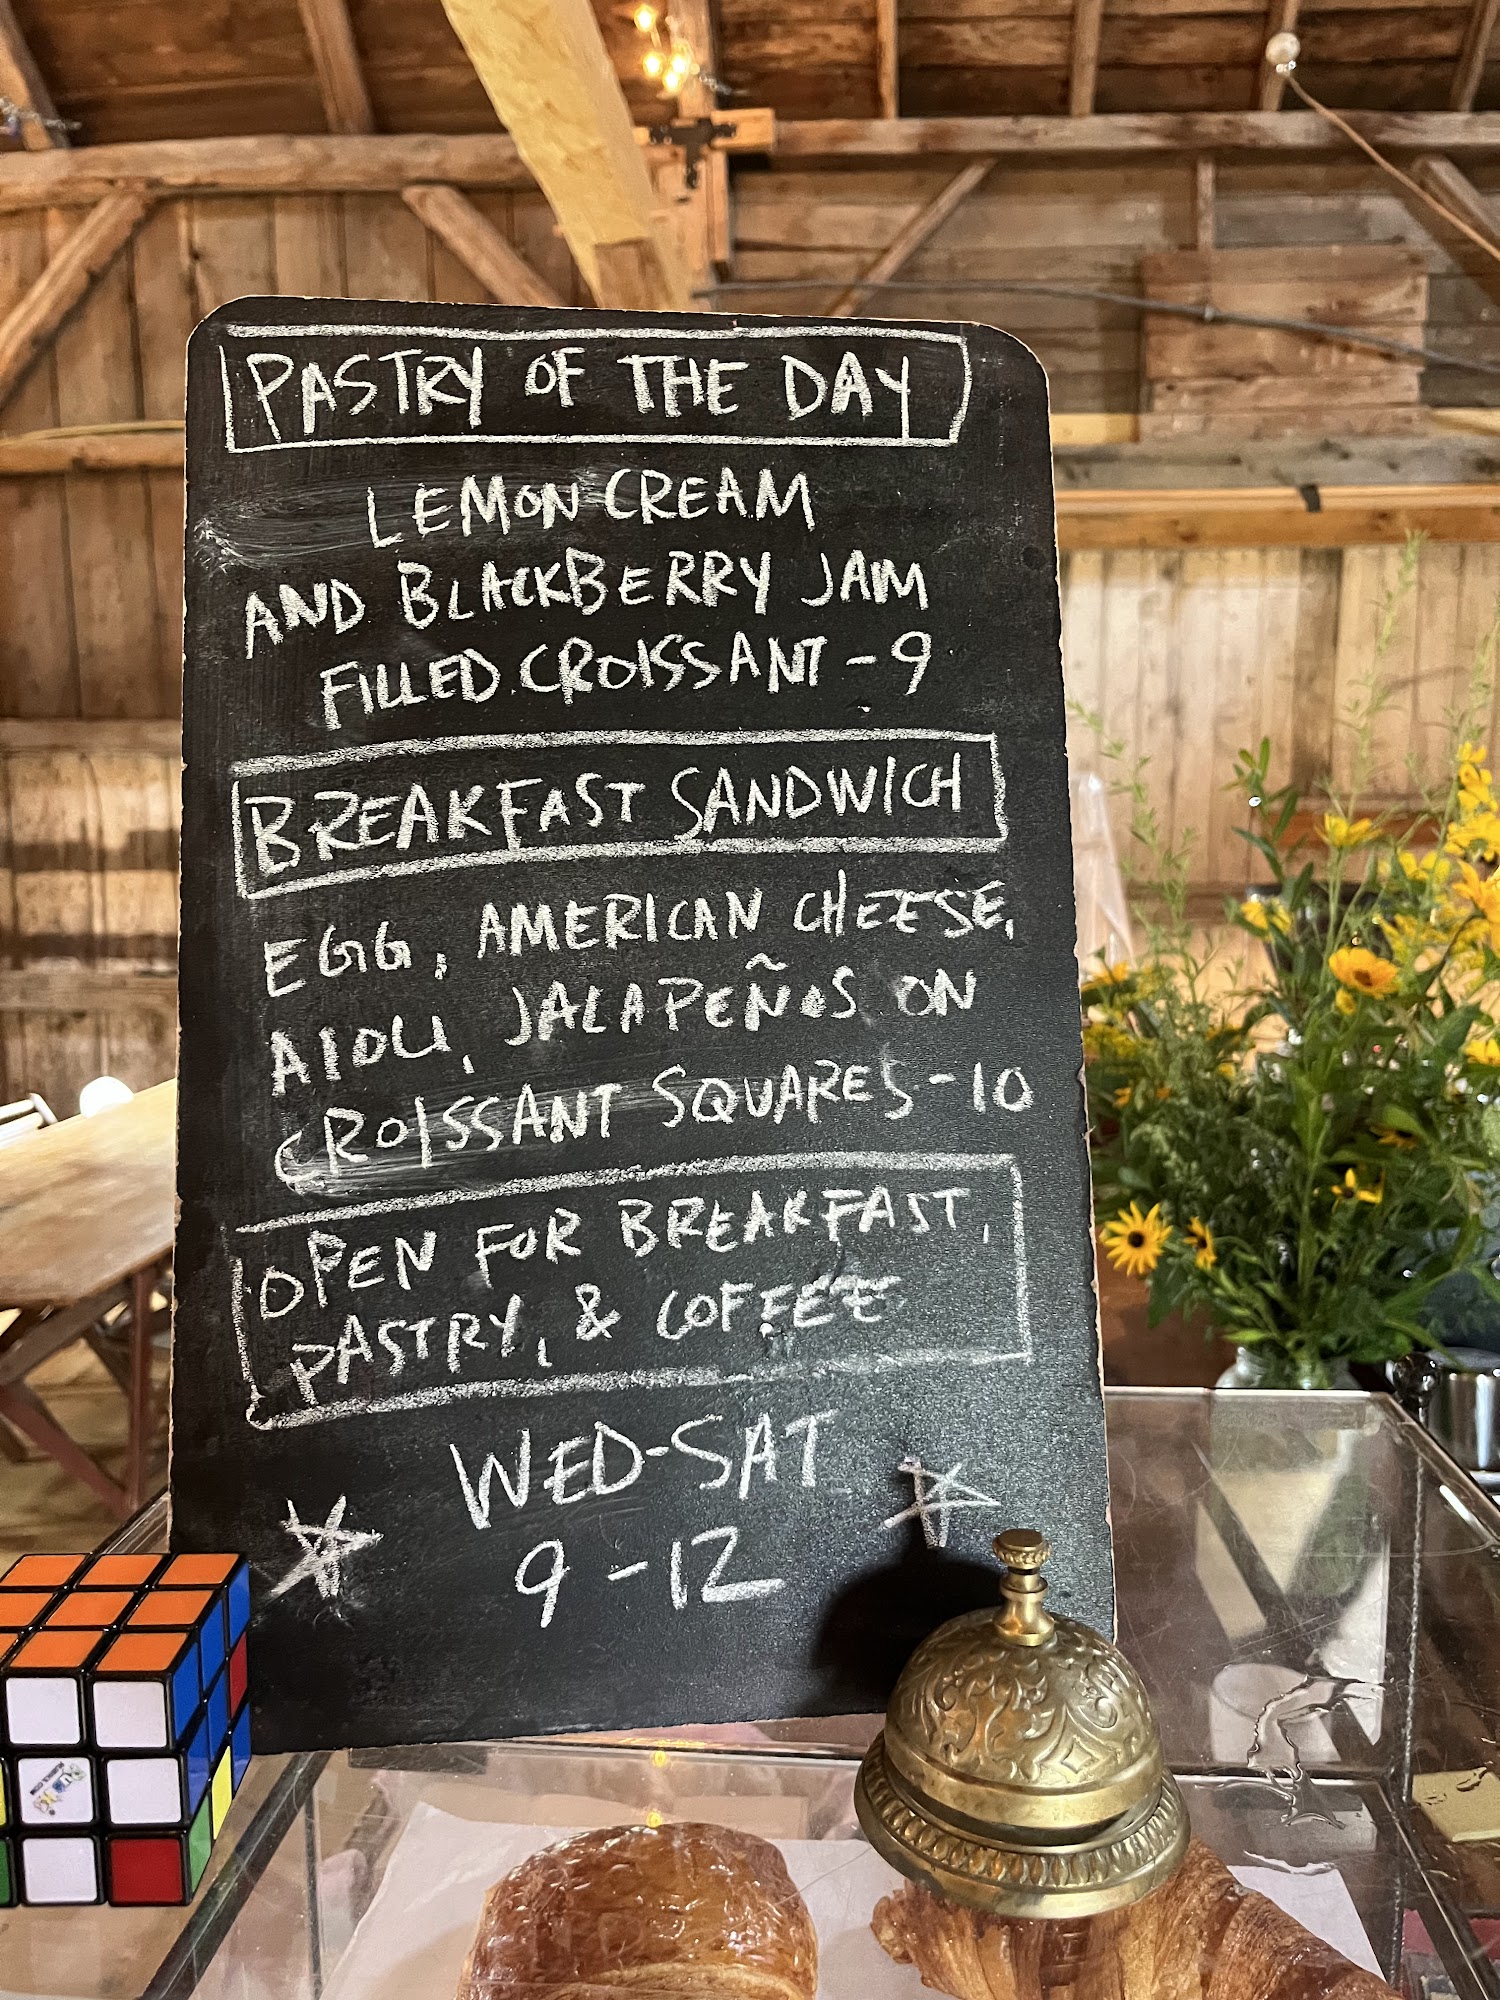 PASTRY OF THE DAY
LEMON CREAM
AND BLACKBERRY JAM
FILLED CROISSANT - 9
BREAKFAST SANDWICH
EGG, AMERICAN CHEESE,
AIOLI, JALAPEÑOS ON
CROISSANT SQUARES - 10
OPEN FOR BREAKFAST,
PASTRY, & COFFEE
WED-SAT
9-12